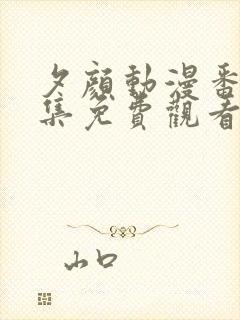 夕顏動漫番
集免費觀看
山口